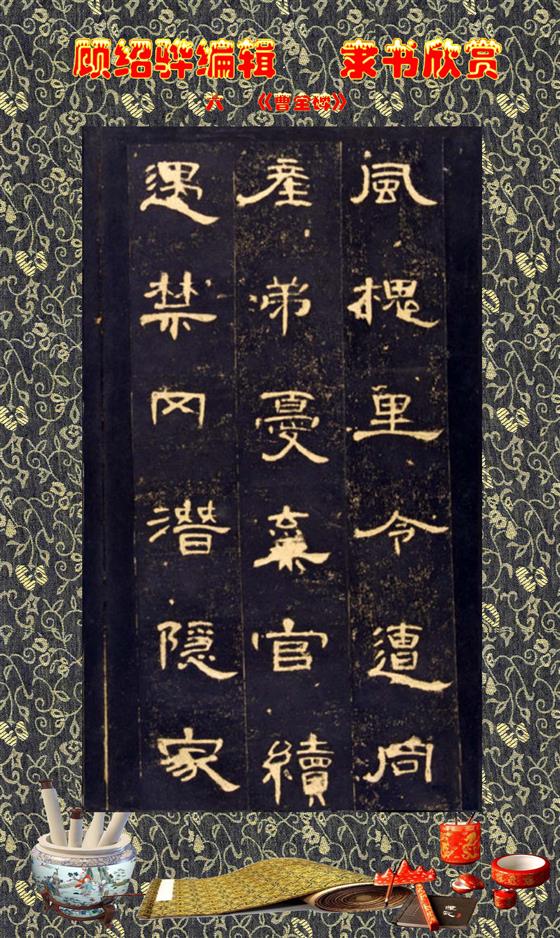 顾绍骅编辑 隶书欣赏
六 《曹全碑》
風槐里令遭同
産弟憂棄官續
遇禁冈潜隱家